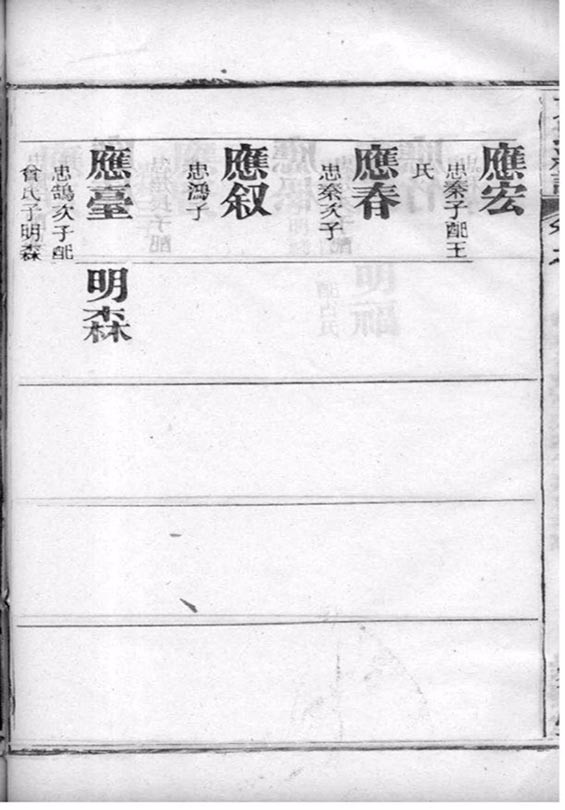 應宏
忠秦子配王
氏
應春
忠秦次子
應叙
忠鴻子
應臺
忠鵠次子配
俞氏子明森
明森